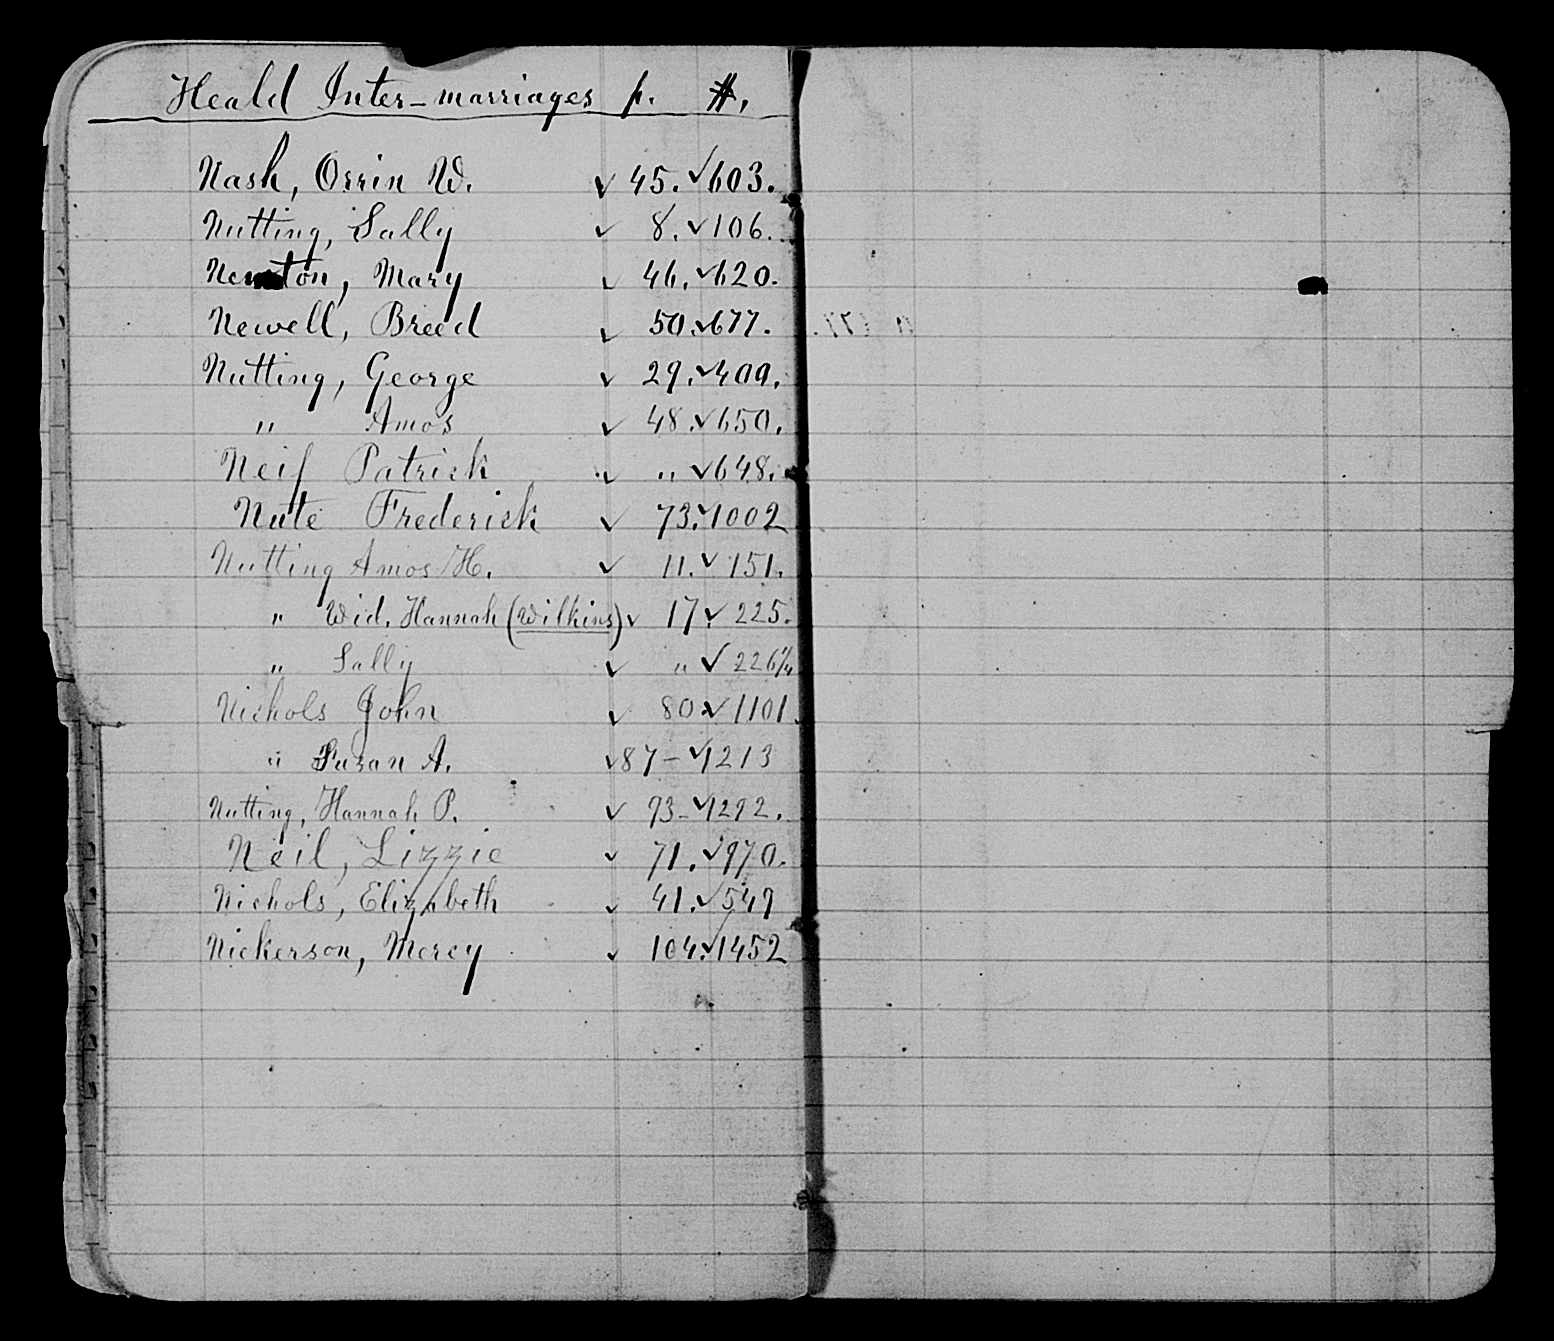 Heald Inter-marriages p. #.
Nash, Orrin W. ✓ 45. ✓603.
Nutting, Sally ✓ 8. ✓106.
Newton, Mary ✓ 46. ✓620.
Newell, Breed ✓ 50. ✓677.
Nutting, George ✓ 29. ✓409.
" Amos ✓ 48. ✓650.
Neif Patrick ✓ " ✓648.
Nute Frederick ✓ 73. ✓1002
Nutting Amos H. ✓ 11. ✓ 151.
" Wid. Hannah (Wilkins) ✓ 17 ✓ 225.
" Sally ✓ " ✓ 226¼
Nichols John ✓ 80 ✓ 1101
" Susan A. ✓ 87 – ✓1213
Nutting, Hannah P. ✓ 93 – ✓1292.
Neil, Lizzie ✓ 71. ✓970.
Nichols, Elizabeth ✓ 41. ✓549
Nickerson, Mercy ✓ 104. ✓1452